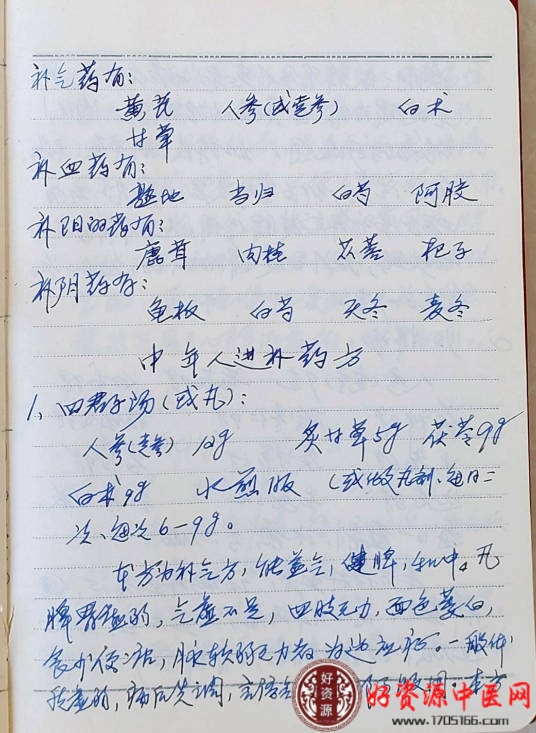 补气药有:
黄芪 人参(或党参) 白术
甘草
补血药有:
熟地 当归 白芍 阿胶
补阳的药有:
鹿茸 肉桂 苁蓉 杞子
补阴药有:
龟板 白芍 天冬 麦冬
中年人进补药方
1、四君子汤(或丸):
人参(党参)12g 炙甘草5g 茯苓9g
白术9g 水煎服 (或做丸剂、每日二
次、每次6-9g。
本方为补气方,能益气,健脾,和中。凡
脾胃虚弱,气虚不足,四肢无力,面色萎白,
食少便溏,脉软弱无力者为适应证。一般体
质虚弱,病后失调,
好资源
好资源中医网
www.1705166.com